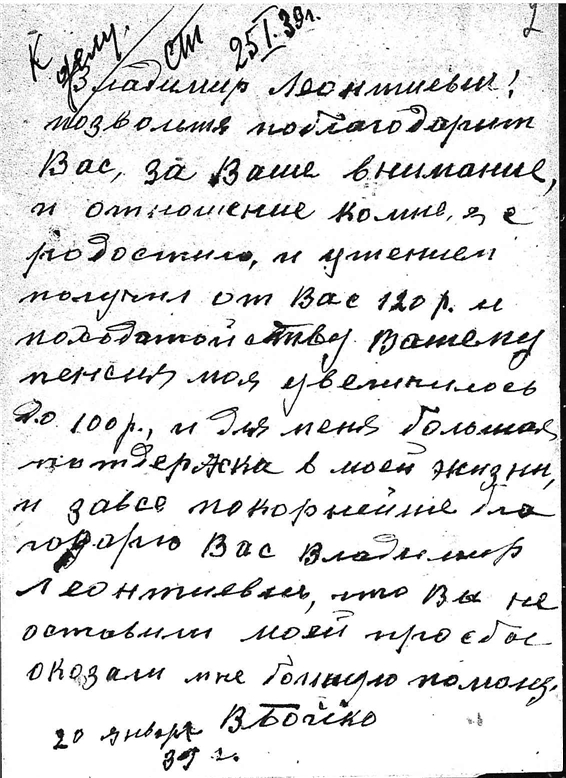 2
К делу.
25 I. 39г.
Владимир Леонтиевич!
позвольтя поблагодарит
Вас, за Ваше внимание,
и отношение комне, я с
родостию, и утением
получил от Вас 120 р. и
походотойству Вашему
пенсия моя увеличилось
до 100 р., и для меня большая
потдержка в моей жизни,
и завсе покорнейше бла
годарю Вас Владимир
Леонтиевич, что Вы не
оставили моей просбы
оказали мне большую помощ.
20 января ВБойко
39 г.